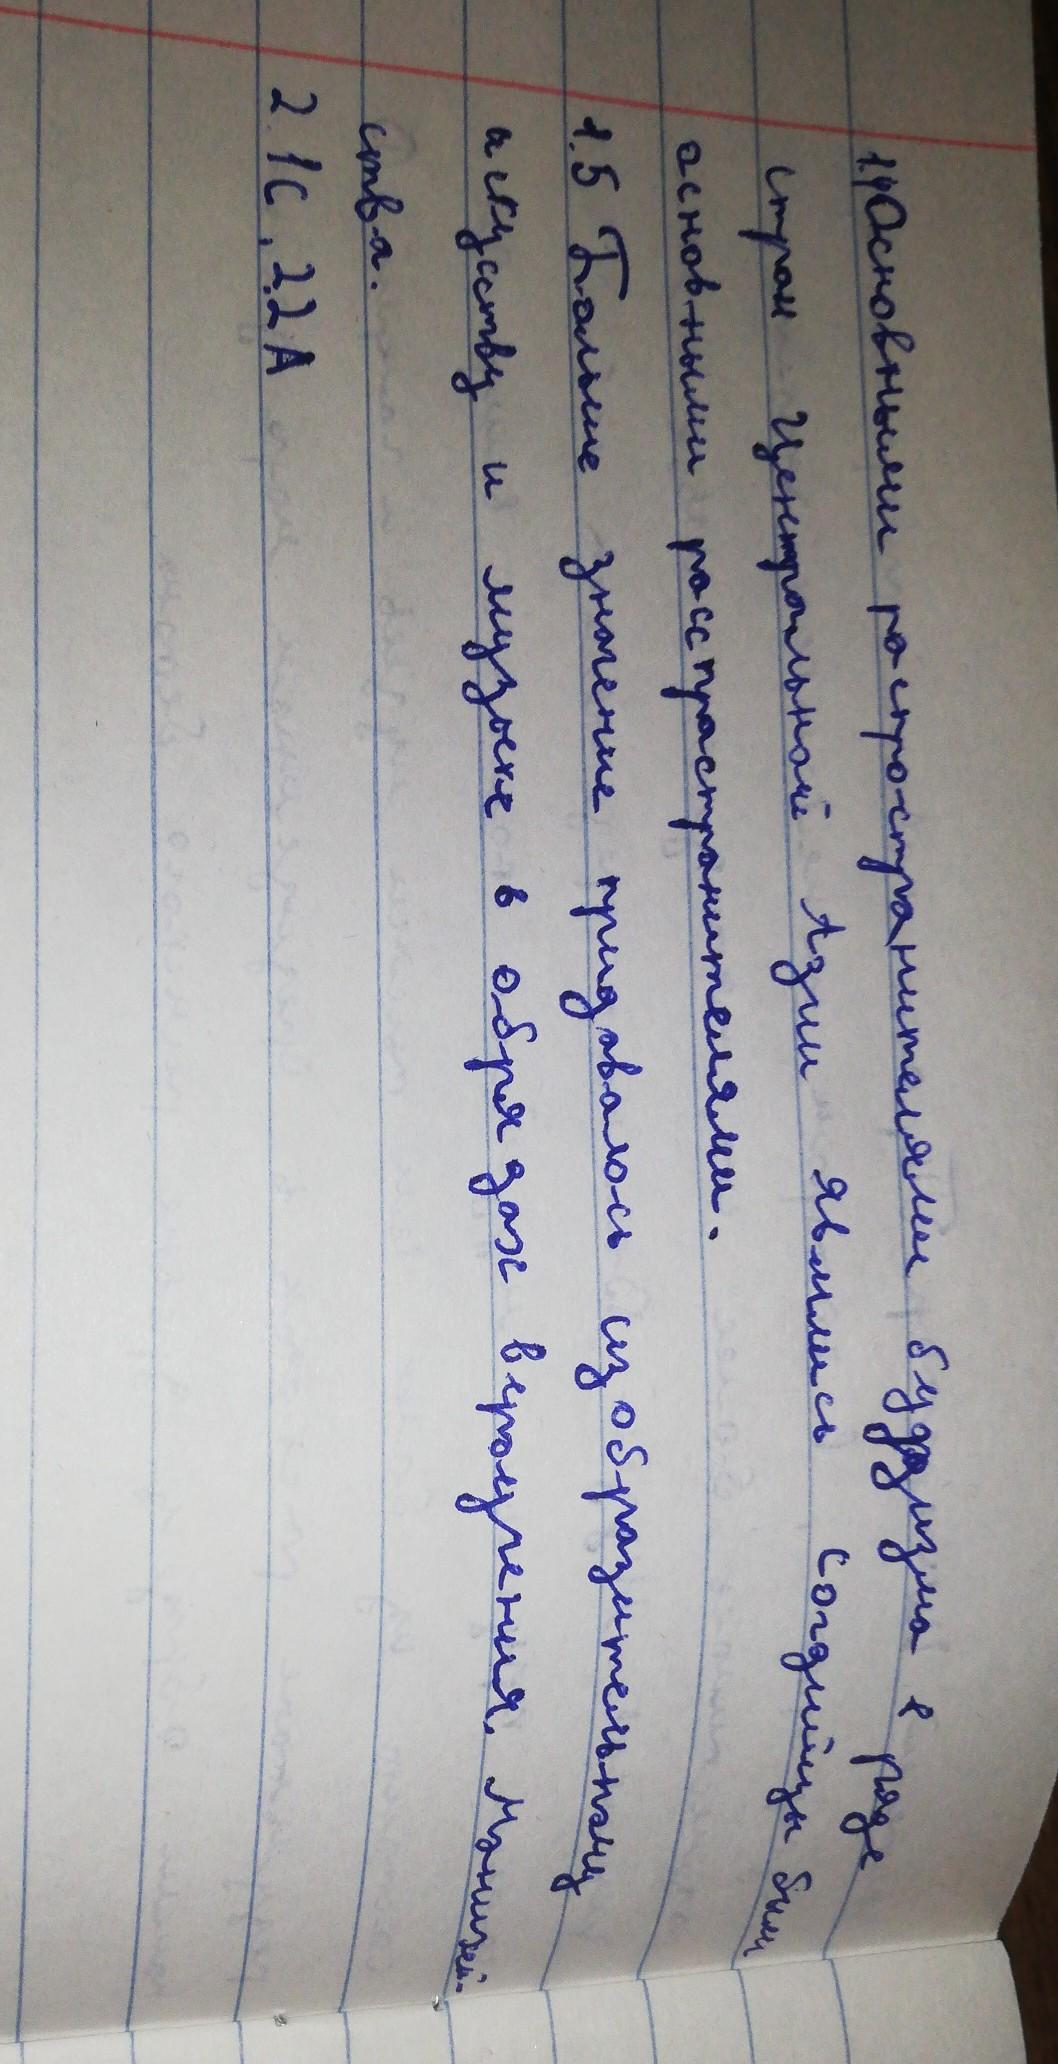 1.4 Основными распространителями буддизма в ряде
стран Центральной Азии явились согдийцы были
основными расспрастранителями.
1.5 Больше значение придавалось изобразительному
искусству и музыке в обрядах вероучения. Манихей-
ства.
2.1С, 2.2А